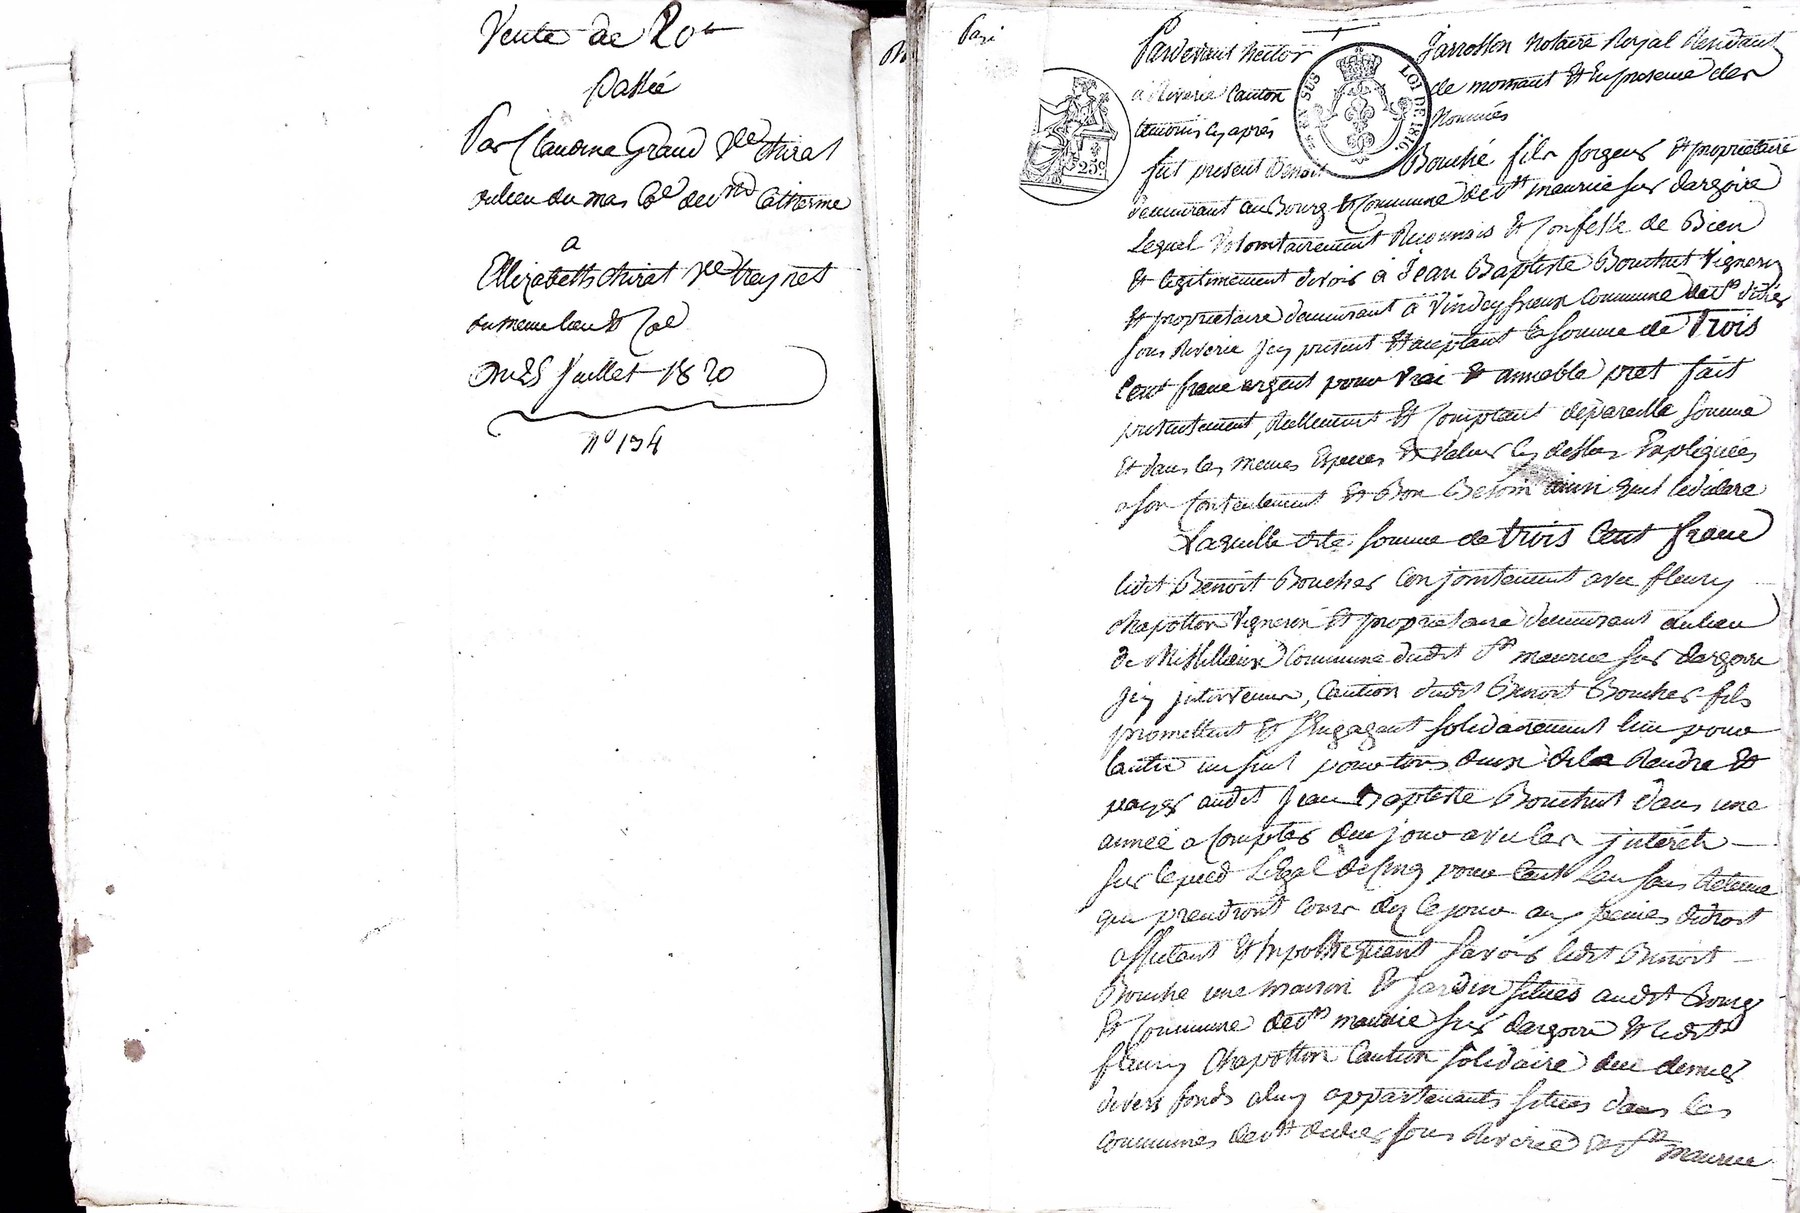 Vente de 20#
Passée
Par Claudine Grand Vve Chirat
au lieu du mas Cne de Ste Catherine
a
Ellizabeth Chirat Vve
du meme lieu & Cne
Du 25 Juillet 1820
N° 134
Pardevant hector Jarrosson Notaire Royal Residant
a Riverie Canton de mornant & En presence des
temoins cy après Nommés
EN SUS
LOI DE 1816.
25c
fut present Benoit Bouché fils forgeur & propriétaire
demeurant au Bourg & Commune de St maurice sur dargoire
Lequel Volontairement Reconnais & Confesse de Bien
& legitimement devoir à Jean Baptiste Bouchut Vigneron
& propriétaire demeurant à Commune de St didier
sous Riverie Icy present & acceptant la somme de Trois
Cent franc argent pour Vrai & amiable pret fait
presentement, Reellement & Comptant de pareille somme
Et dans les memes Especes & Valeur cy dessus Expliquées
a son Contentement & Bon Besoin ainsi quil le déclare
Laquelle dite somme de trois Cent franc
ledit Benoit Boucher Conjointement avec fleury
Chapotton Vigneron & propriétaire demeurant au lieu
de Commune dudit St maurice sur dargoire
Icy intervenu, Caution dudit Benoit Boucher fils
promettent & Sengagent solidairement lun pour
lautre un seul pour tous deux de la Rendre &
payer audit Jean Baptiste Bouchut dans une
année a Compter de ce jour avec les jnterêts
sur le pied Légal de Cinq pour Cent Lan sans Retenue
qui prendront Cours dez ce jour aux peines de droit
affectant & hypothequant savoir ledit Benoit
Bouché une maison & jardin situés audit Bourg
& Commune de St maurice sur dargoire & ledit
fleury Chapotton Caution solidaire de ce dernier
divers fonds a luy appartenants situés dans les
Communes de St didier sous Riverie & St maurice